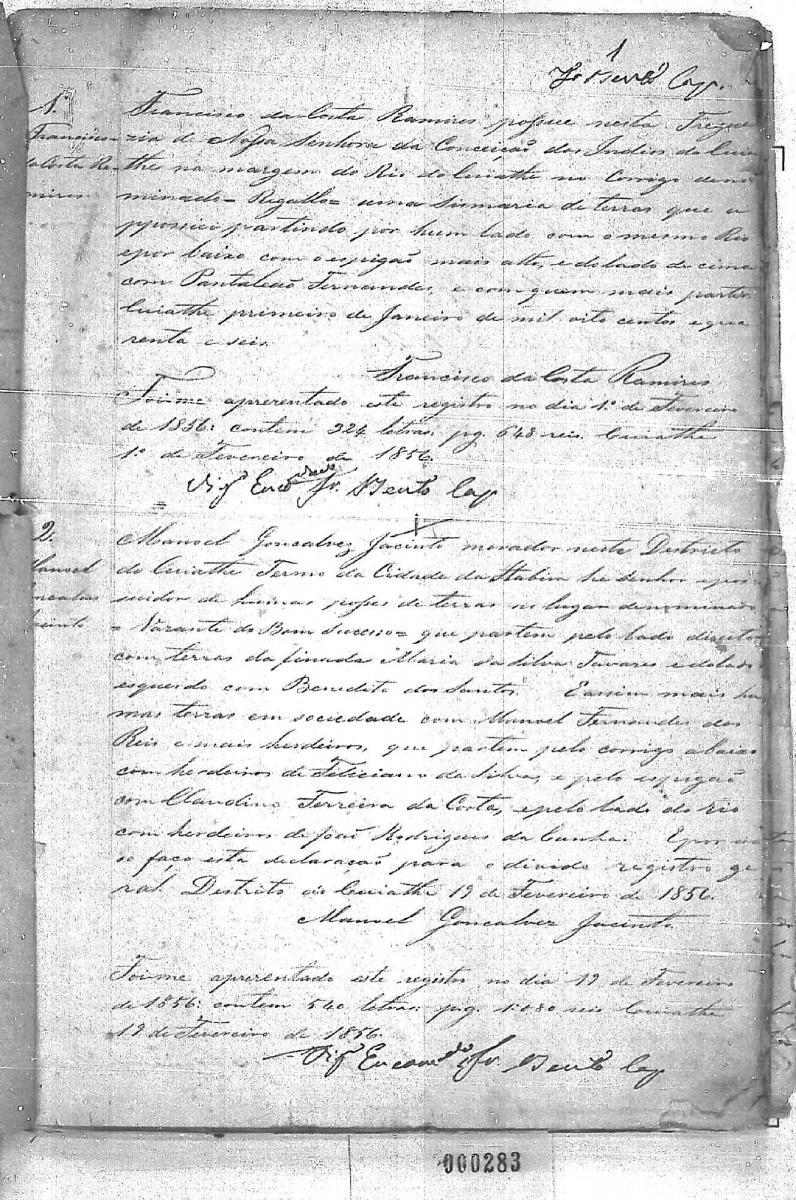 1
Fr. Bento Cap.
1.
Francisco
da Costa Ra
mires
Francisco da Costa Ramires possue nesta Fregue
zia de Nossa Senhora da Conceição dos Indios do Cuia
the na margem do Rio do Cuiathe no Corrigo deno
minado = Regallo = uma Sismaria de terras que a
possuo partindo por hum lado com o mesmo Rio
epor baixo com o espigão mais alto, e do lado de cima
com Pantaleão Fernandes, e com quem mais partir
Cuiathe primeiro de Janeiro de mil oito centos e qua
renta e seis.
Francisco da Costa Ramires
Foi-me aprezentado este registro no dia 1º de Fevereiro
de 1856: contem 324 letras, pg. 648 reis. Cuiathe
1º de Fevereiro de 1856.
Vigº Encº Fr. Bento Cap
2.
Manoel
Goncalves
Jacinto
Manoel Goncalvez Jacinto morador neste Districto
do Cuiathe Termo da Cidade da Itabira he Senhor epos
suidor de humas posses de terras no lugar denominado
= Varante do Bom Sucesso = que partem pelo lado direito
com terras da finada Maria da Silva Tavares e do lado
esquerdo com Benedito dos Santos. E assim mais hu
mas terras em sociedade com Manoel Fernandes dos
Reis e mais herdeiros, que partem pelo corrigo abaixo
com herdeiros de Feliciano da Silva, e pelo espigão
com Claudino Ferreira da Costa, epelo lado do rio
com herdeiros de João Rodrigues da Cunha. Epor
so faço esta declaração para o divido registro ge
ral. Districto do Cuiathe 19 de Fevereiro de 1856.
Manoel Goncalvez Jacinto
Foi-me aprezentado este registro no dia 19 de Fevereiro
de 1856: contem 540 letras: pg. 1:080 reis Cuiathe
19 de Fevereiro de 1856.
Vigº Encomdo Fr. Bento Cap
000283